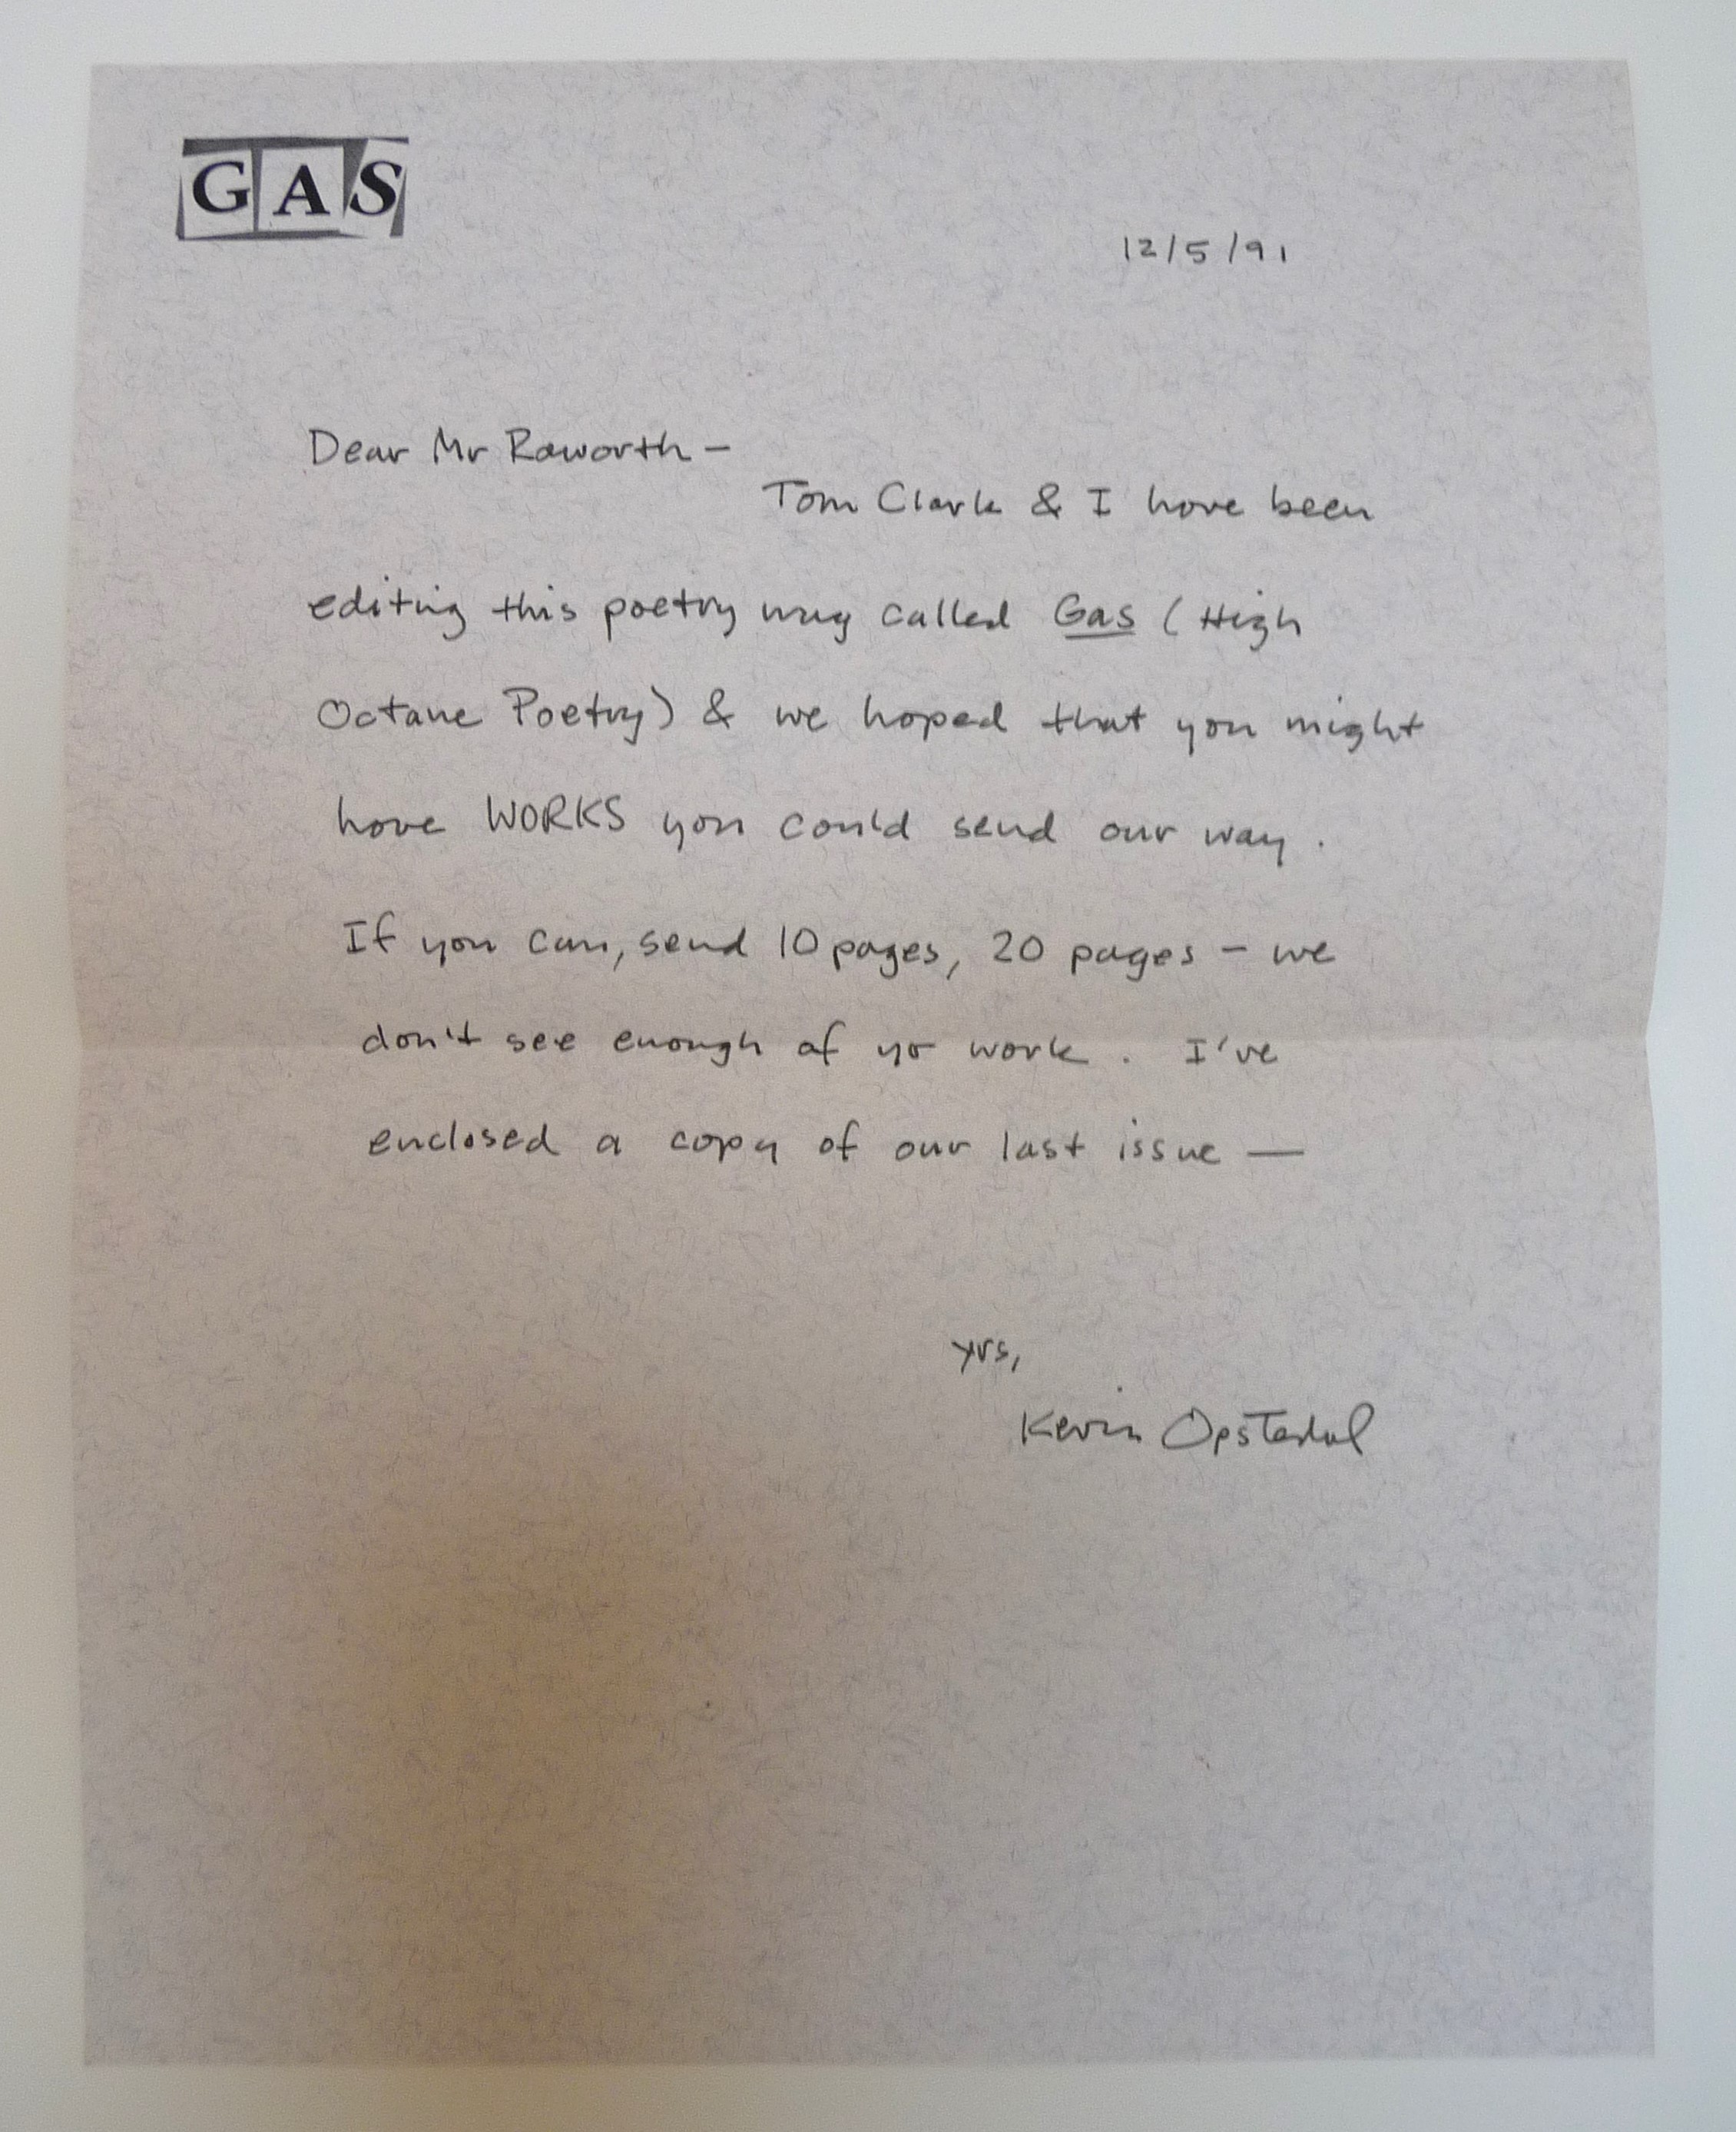 GAS
12/5/91
Dear Mr Raworth –
Tom Clark & I have been
editing this poetry mag called Gas (High
Octane Poetry) & we hoped that you might
have WORKS you could send our way.
If you can, send 10 pages, 20 pages – we
don't see enough of yr work. I've
enclosed a copy of our last issue —
yrs,
Kevin Opstedal